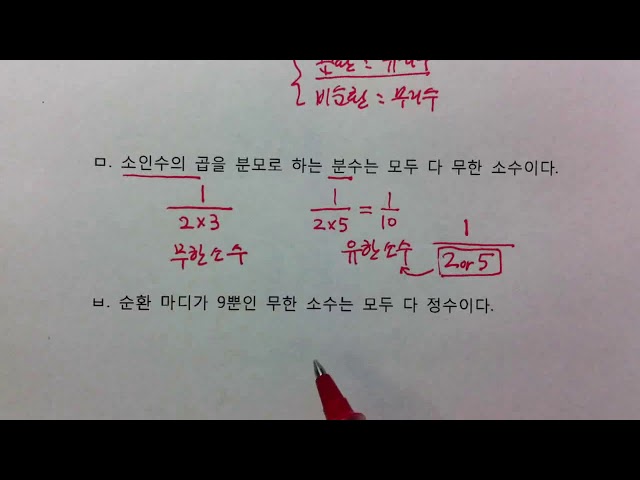 비순환 = 무리수
ㅁ. 소인수의 곱을 분모로 하는 분수는 모두 다 무한 소수이다.
1/2×3 1/2×5 = 1/10
무한소수 유한소수 1/2 or 5
ㅂ. 순환 마디가 9뿐인 무한 소수는 모두 다 정수이다.